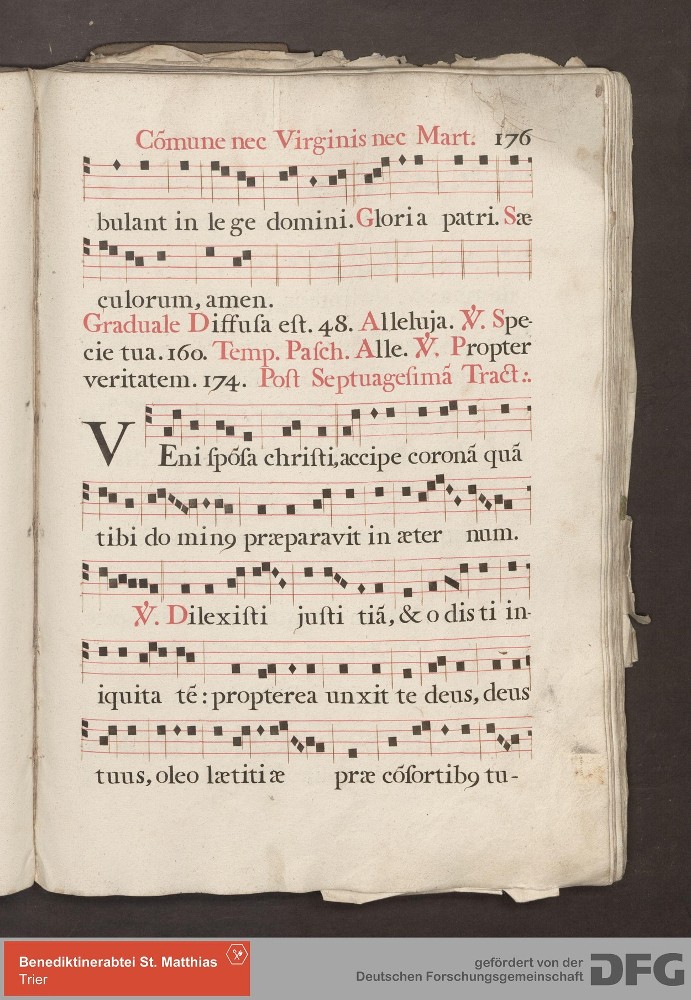 Cõmune nec Virginis nec Mart. 176
bulant in lege domini. Gloria patri. Sæ
culorum, amen.
Graduale Diffuſa eſt. 48. Alleluja. ℣. Spe-
cie tua. 160. Temp. Paſch. Alle. ℣. Propter
veritatem. 174. Poſt Septuageſimã Tract:.
VEni ſpõſa chriſti, accipe coronã quã
tibi do minꝯ præparavit in æter num.
℣. Dilexiſti juſti tiã, & o dis ti in-
iquita tẽ: propterea unxit te deus, deus
tuus, oleo lætiti æ præ cõſortibꝯ tu-
Benediktinerabtei St. Matthias
Trier
gefördert von der
Deutschen Forschungsgemeinschaft
DFG